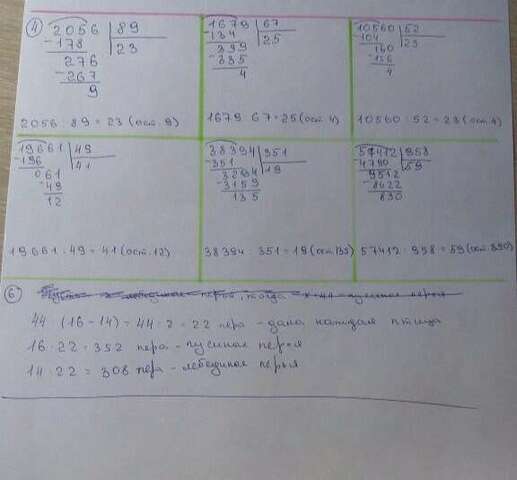 4
2056 | 89
- 178 | 23
276
- 267
9
2056 : 89 = 23 (ост. 9)
1679 | 67
- 134 | 25
339
- 335
4
1679 : 67 = 25 (ост. 4)
10560 | 52
- 104 | 23
160
- 156
4
10560 : 52 = 23 (ост. 4)
19661 | 49
- 196 | 41
061
- 49
12
19661 : 49 = 41 (ост. 12)
38394 | 351
- 351 | 19
3294
- 3159
135
38394 : 351 = 19 (ост 135)
57412 | 958
- 4790 | 59
9512
- 8622
890
57412 : 958 = 59 (ост. 890)
6
44 : (16 - 14) = 44 : 2 = 22 пера - дала каждая птица
16 · 22 = 352 пера - гусиные перья
14 · 22 = 308 пера - лебединые перья